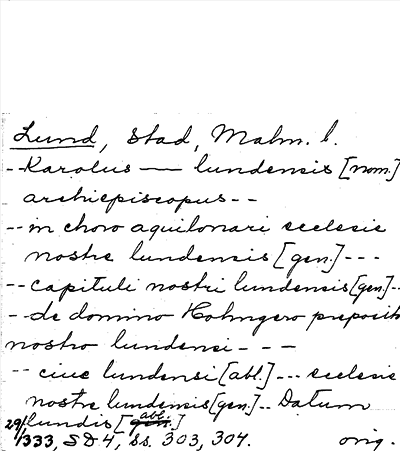 Lund, stad, Malm. l.
--Karolus — lundensis [nom.]
archiepiscopus--
--in choro aquilonari ecclesie
nostre lundensis [gen.]---
--capituli nostri lundensis [gen.]--
--de domino Holmgero preposito
nostro lundensi---
--ciue lundensi [abl.]--- ecclesie
nostre lundensis [gen.].. Datum
lundis [gen. abl.]
29/1 1333, SD4, ss. 303, 304. orig.